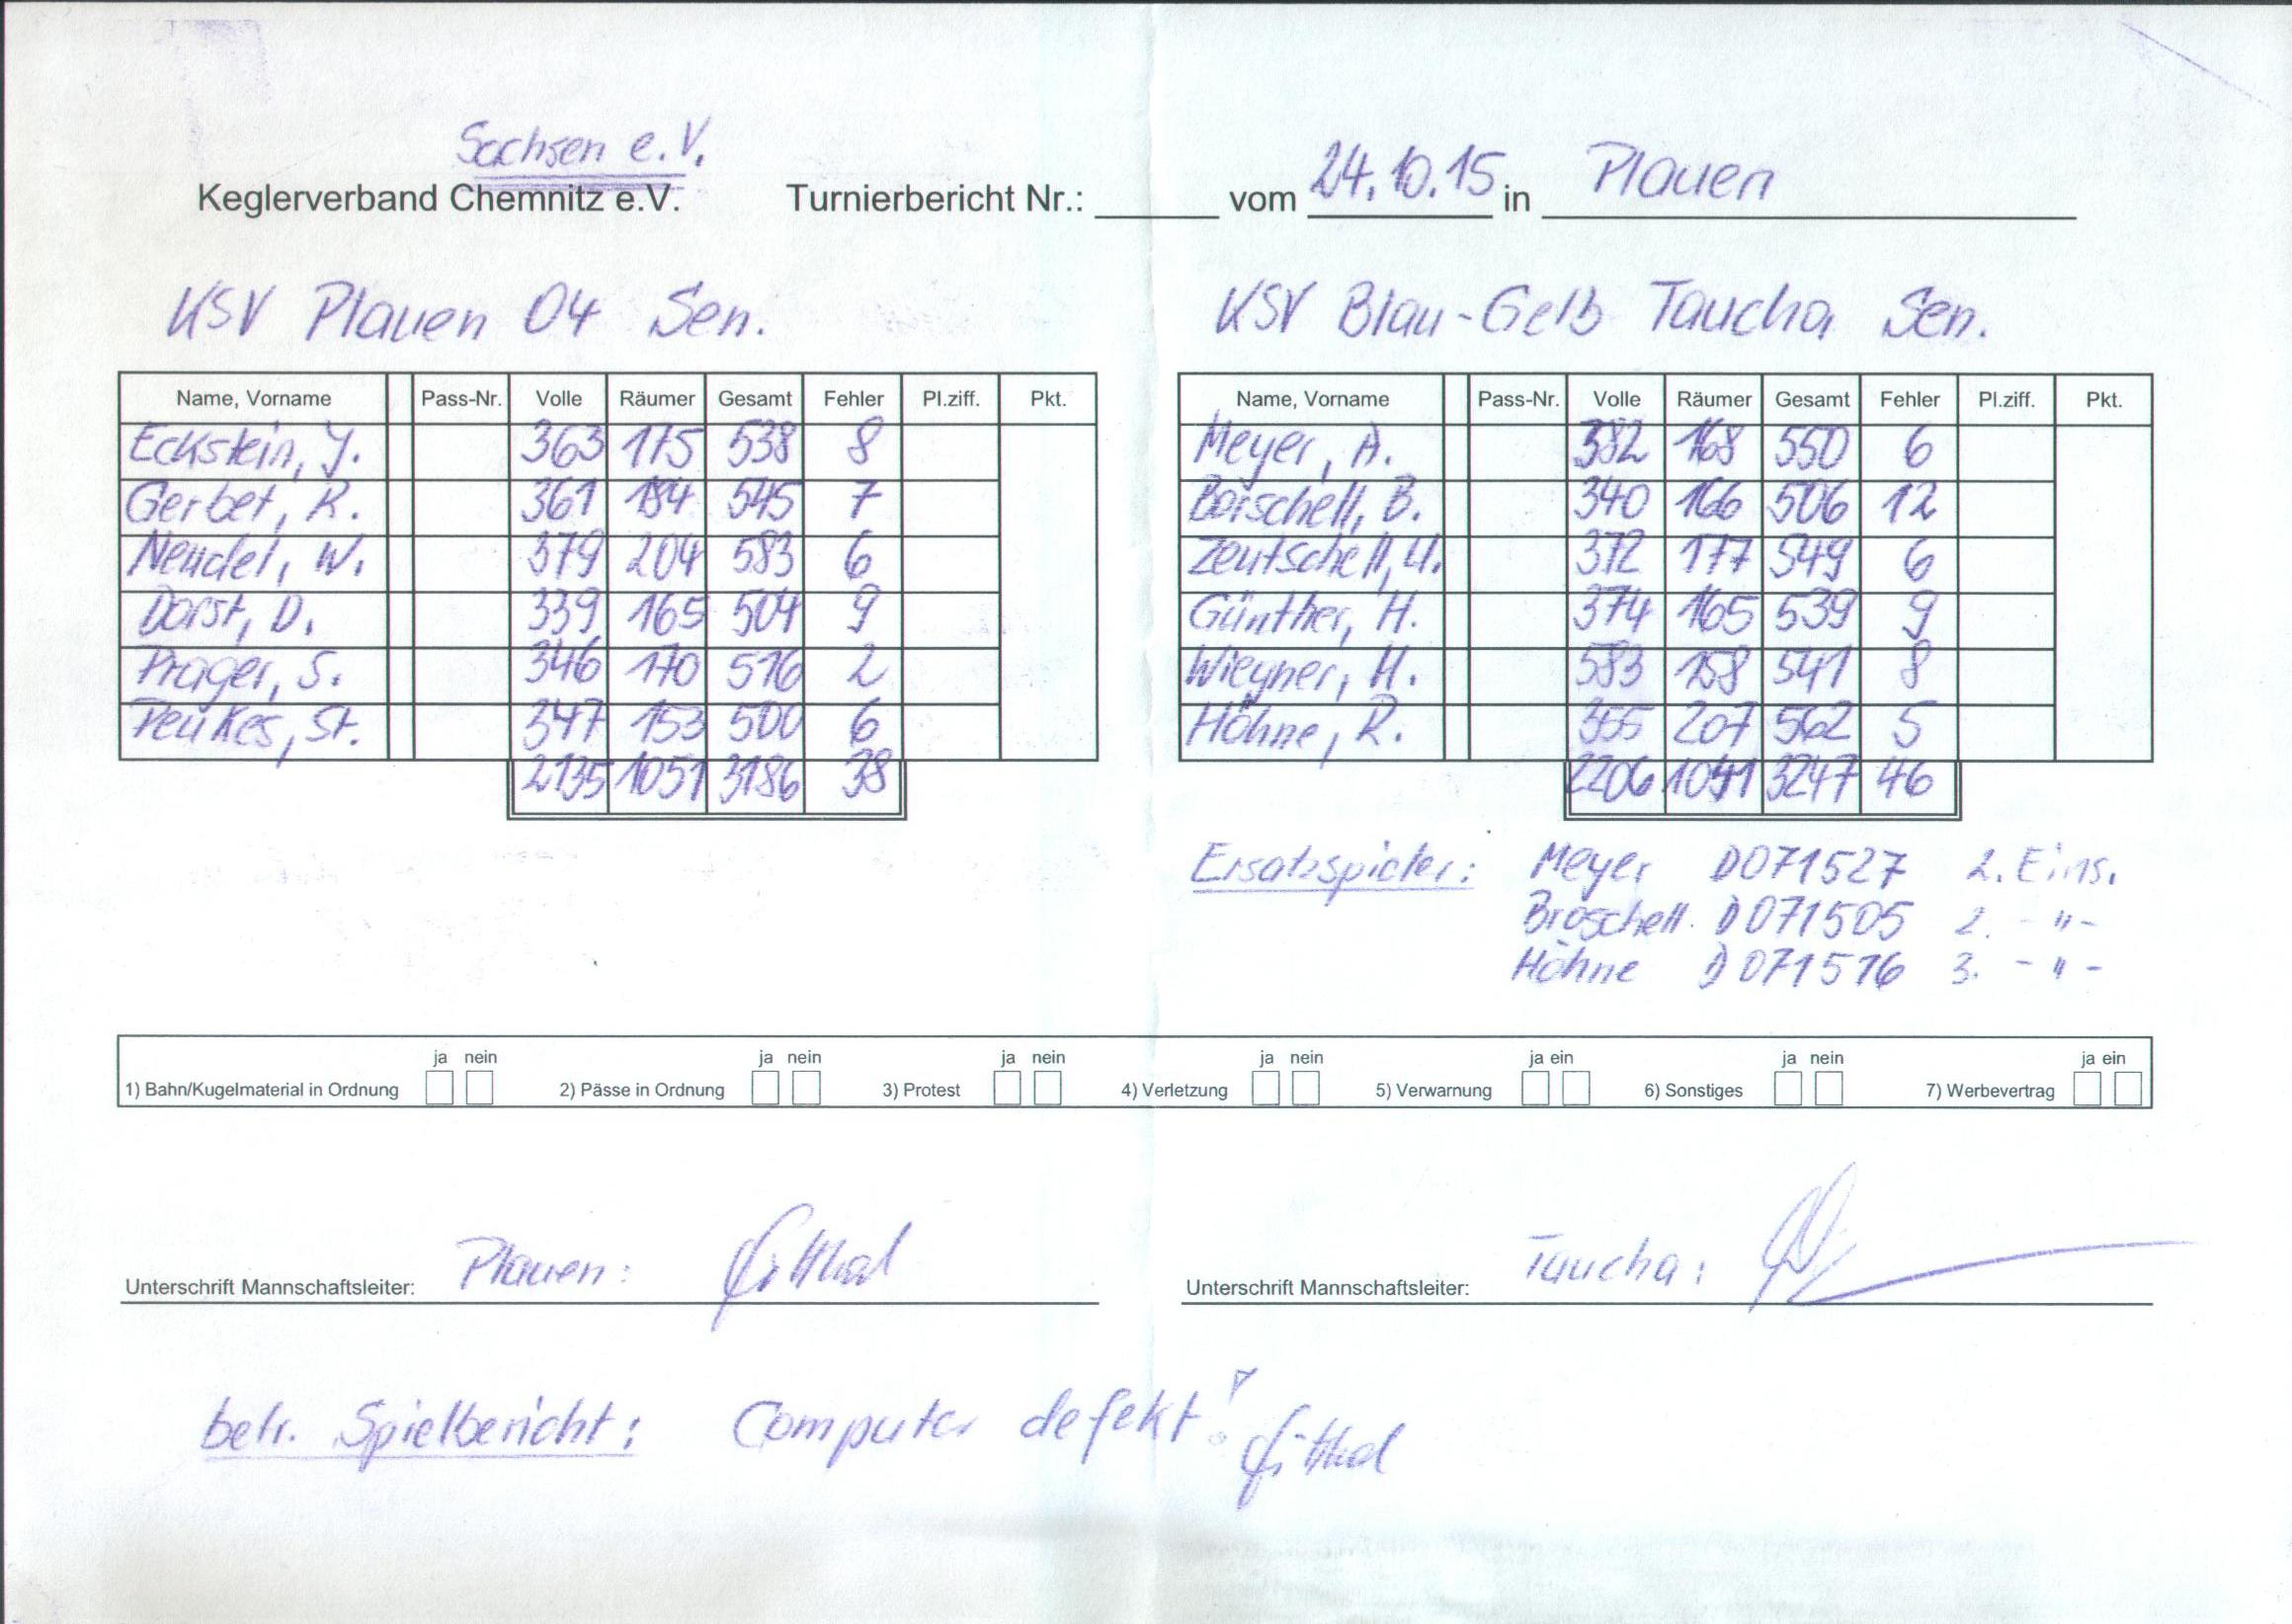 Sachsen e.V.
Keglerverband Chemnitz e.V. Turnierbericht Nr.: vom 24.10.15 in Plauen
KSV Plauen 04 Sen.
Name, Vorname Pass-Nr. Volle Räumer Gesamt Fehler Pl.ziff. Pkt.
Eckstein, J. 363 175 538 8
Gerbet, R. 361 184 545 7
Neudel, W. 379 204 583 6
Dorst, D. 339 165 504 9
Prager, S. 346 170 516 2
Peukes, St. 347 153 500 6
2135 1051 3186 38
KSV Blau-Gelb Taucha Sen.
Name, Vorname Pass-Nr. Volle Räumer Gesamt Fehler Pl.ziff. Pkt.
Meyer, A. 382 168 550 6
Boischell, B. 340 166 506 12
Zeutschell, U. 372 177 549 6
Günther, H. 374 165 539 9
Wiegner, H. 583 158 541 8
Höhne, R. 355 207 562 5
2206 1041 3247 46
Ersatzspieler: Meyer D071527 2. Eins.
Bröschell. D071505 2. - " -
Höhne D071516 3. - " -
ja nein ja nein ja nein ja nein ja ein ja nein ja ein
1) Bahn/Kugelmaterial in Ordnung 2) Pässe in Ordnung 3) Protest 4) Verletzung 5) Verwarnung 6) Sonstiges 7) Werbevertrag
Unterschrift Mannschaftsleiter: Plauen:
Unterschrift Mannschaftsleiter: Taucha:
betr. Spielbericht: Computer defekt!